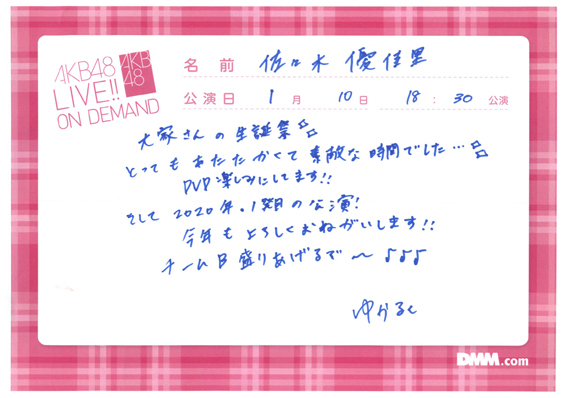 AKB48
LIVE!!
ON DEMAND
AKB
48
名前 佐々木 優佳里
公演日 1月 10日 18:30 公演
大家さんの生誕祭
とってもあたたかくて素敵な時間でした…
DVD楽しみにしてます!!
そして2020年.1発目の公演!
今年もよろしくおねがいします!!
チームB盛りあげるで〜♪♪♪
ゆかるん
DMM.com